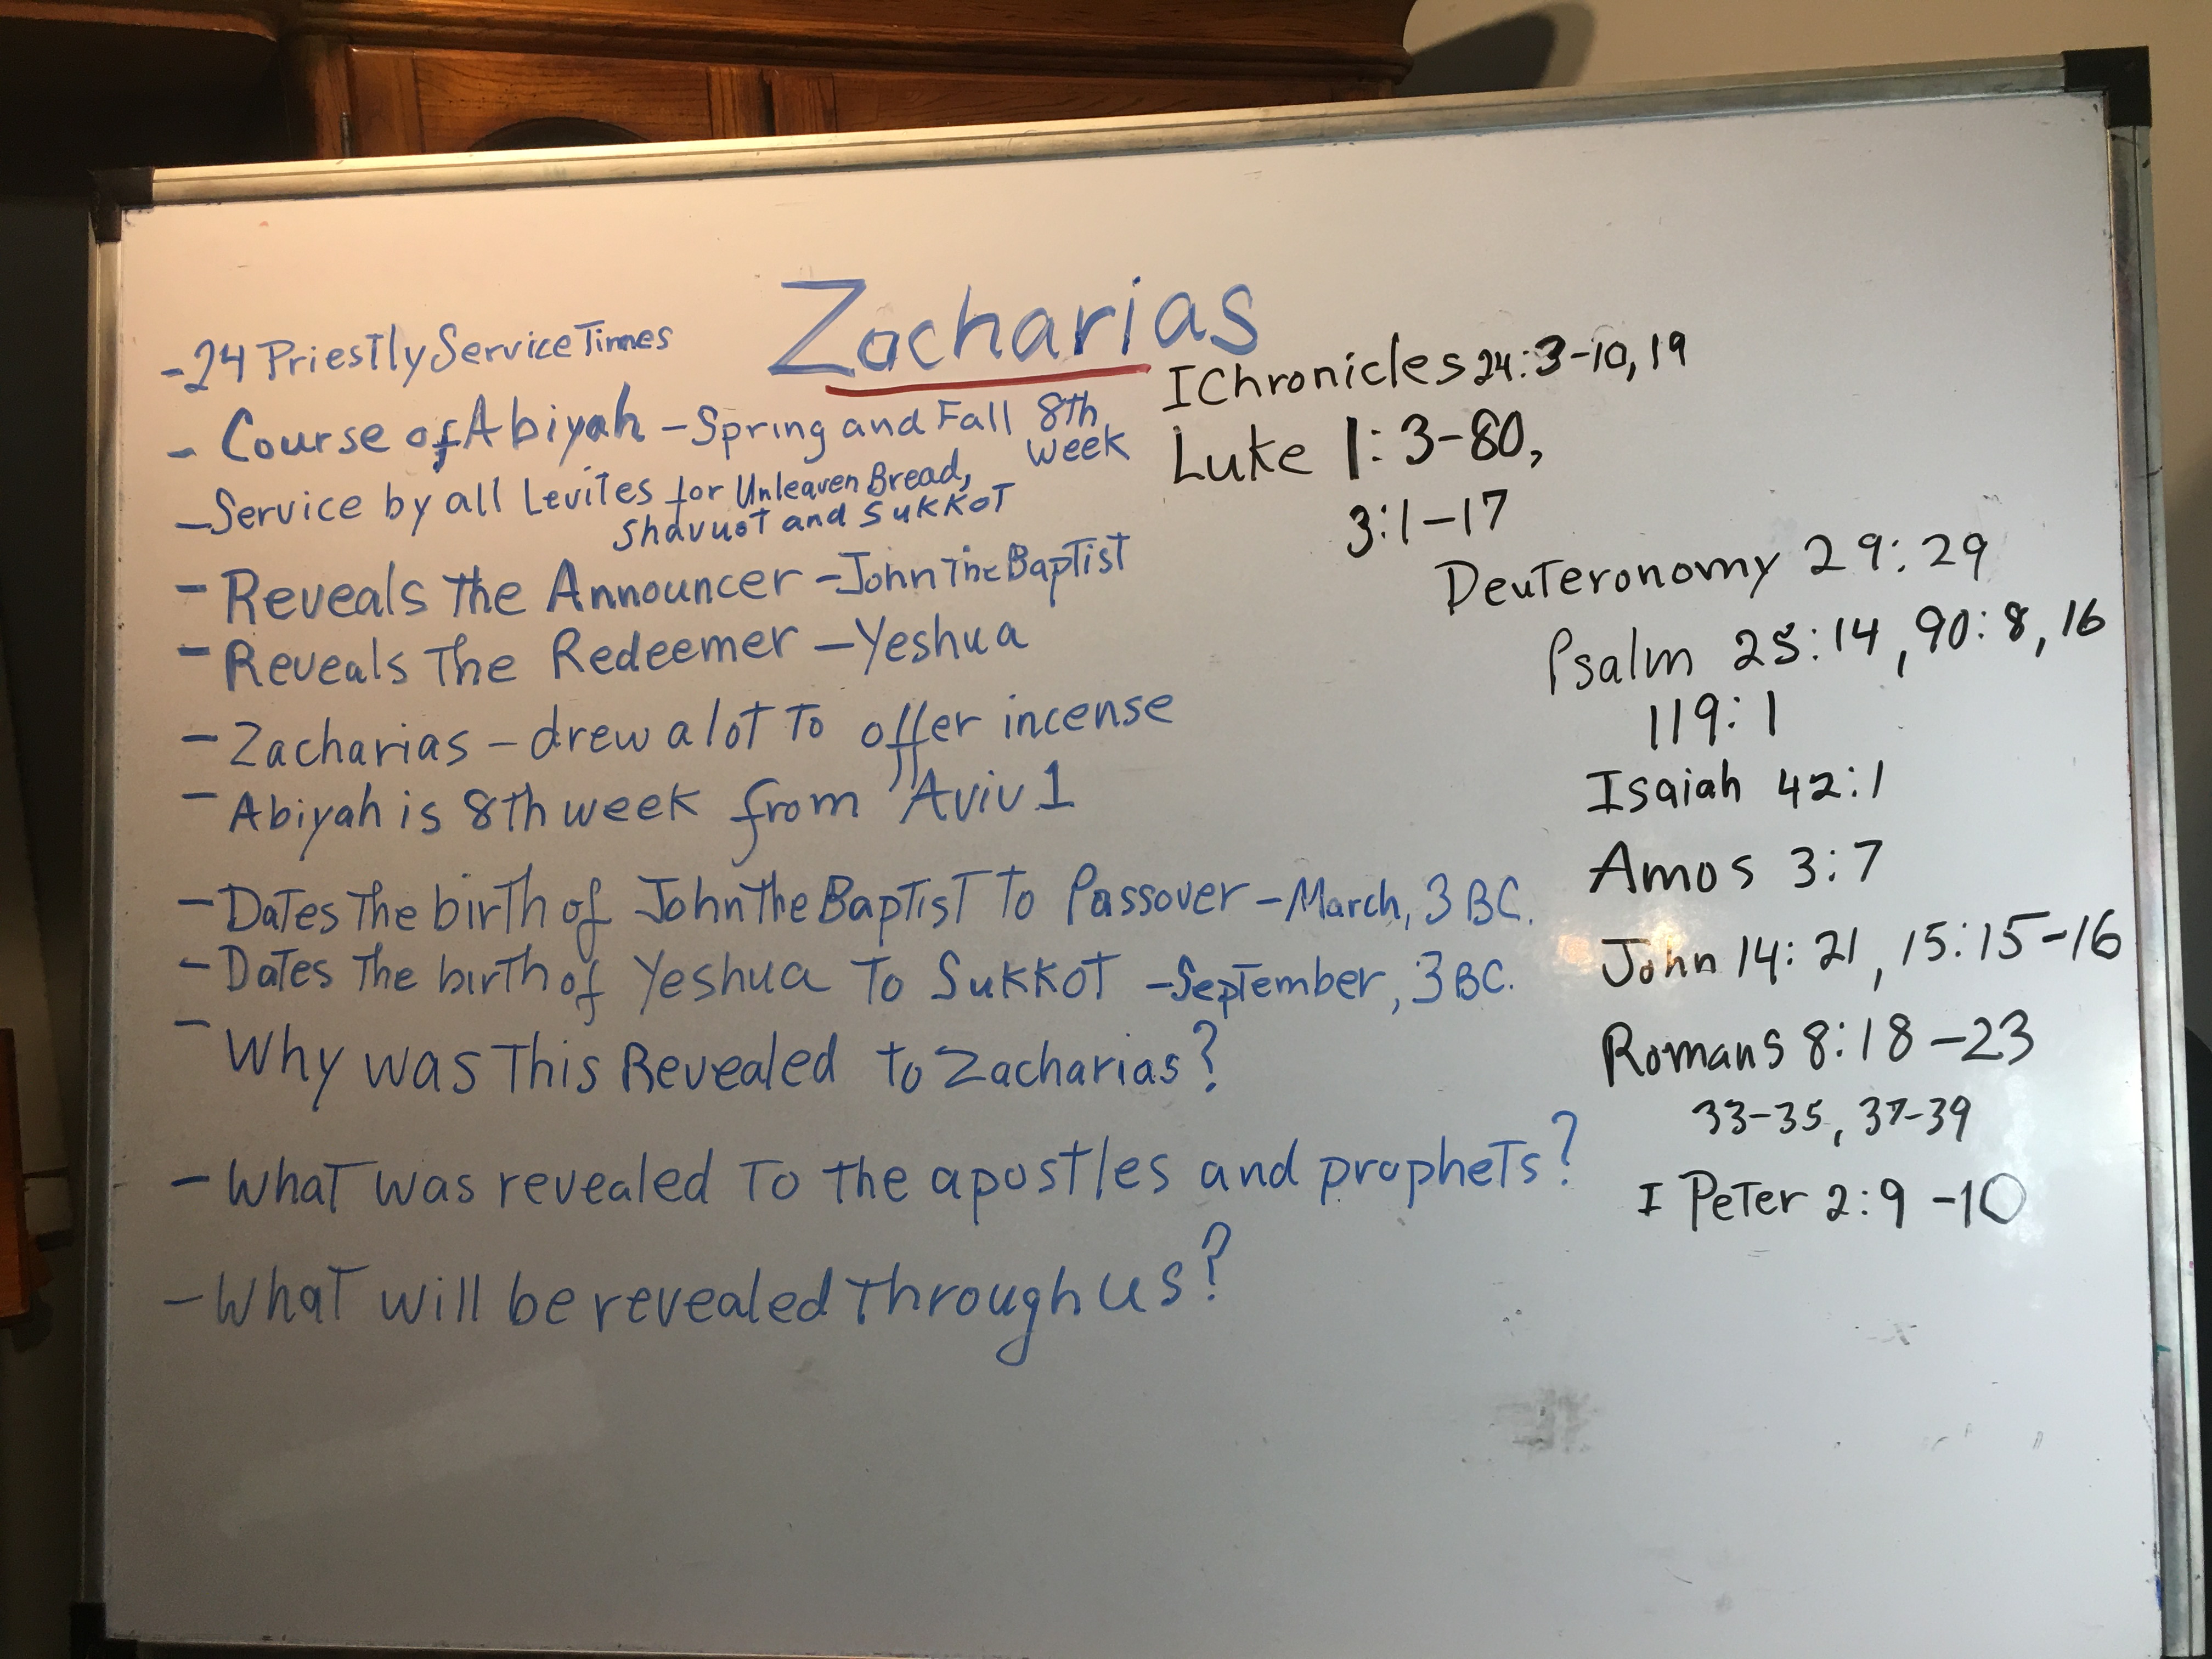 Zacharias
-24 Priestly Service Times
- Course of Abiyah - Spring and Fall 8th
week
- Service by all Levites for Unleaven Bread,
Shavuot and Sukkot
- Reveals the Announcer - John The Baptist
- Reveals The Redeemer - Yeshua
- Zacharias - drew a lot To offer incense
- Abiyah is 8th week from Aviv 1
- Dates The birth of John The Baptist To Passover - March, 3 BC.
- Dates The birth of Yeshua To Sukkot - September, 3 BC.
- Why was This Revealed to Zacharias?
- What was revealed To the apostles and prophets?
- What will be revealed through us?
I Chronicles 24:3-10, 19
Luke 1:3-80,
3:1-17
Deuteronomy 29:29
Psalm 25:14, 90:8, 16
119:1
Isaiah 42:1
Amos 3:7
John 14:21, 15:15-16
Romans 8:18-23
33-35, 37-39
I Peter 2:9-10